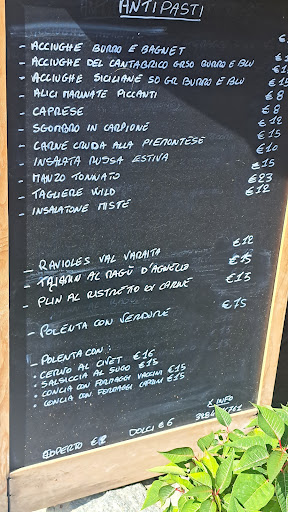 ANTIPASTI
- ACCIUGHE BURRO E BAGNET €
- ACCIUGHE DEL CANTABRICO GR50 BURRO E BLU €1
- ACCIUGHE SICILIANE 50 GR BURRO E BLU €
ALICI MARINATE PICCANTI € 8
- CAPRESE € 8
- SGOMBRO IN CARPIONE € 12
- CARNE CRUDA ALLA PIEMONTESE € 15
- INSALATA RUSSA ESTIVA € 10
- MANZO TONNATO € 15
- TAGLIERE WILD € 23
- INSALATONE MISTE € 12
- RAVIOLES VAL VARAITA € 12
- TAJARIN AL RAGÙ D'AGNELLO € 15
- PLIN AL RISTRETTO DI CARNE € 13
- POLENTA CON VERDURE € 15
- POLENTA CON:
- CERVO AL CIVET € 16
- SALSICCIA AL SUGO € 15
- CONCIA CON FORMAGGI VACCINI € 15
- CONCIA CON FORMAGGI CAPRINI € 15
COPERTO € 2 DOLCI € 6
INFO